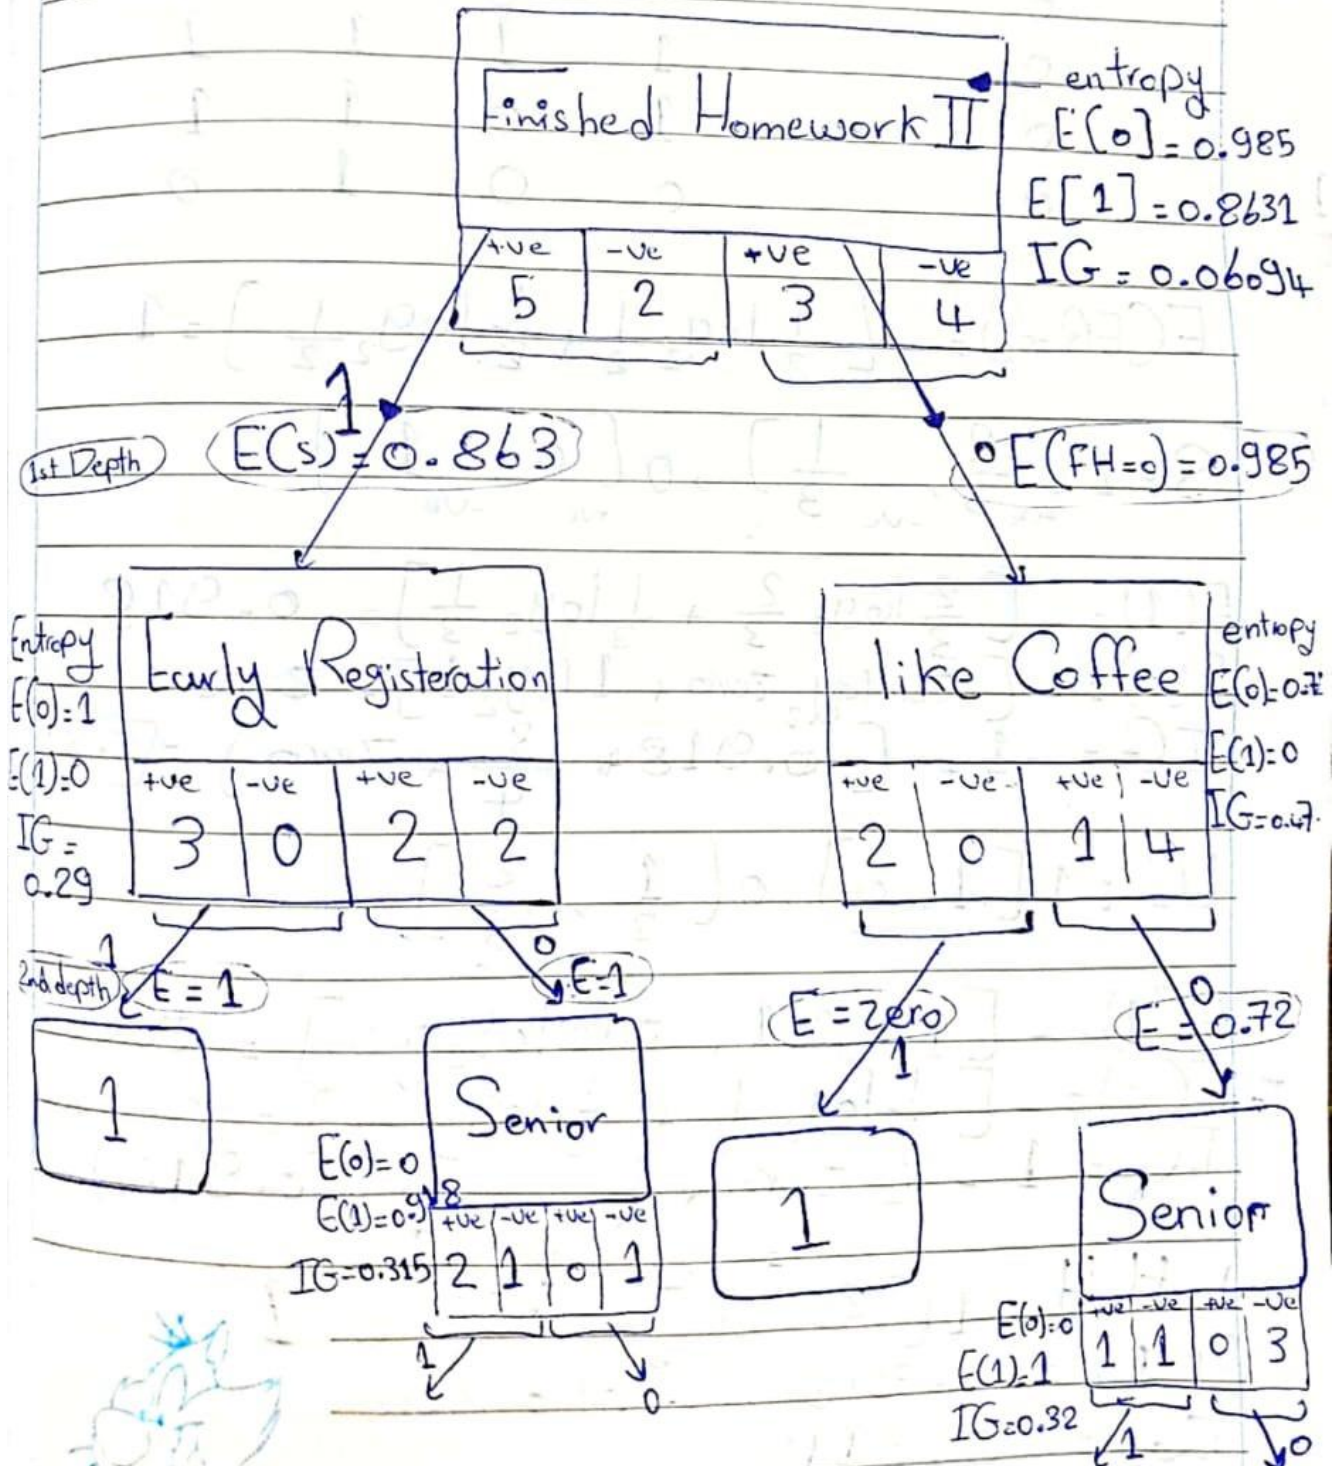 Finished Homework II
entropy
E[0]=0.985
E[1]=0.8631
IG=0.06094
+ve -ve +ve -ve
5 2 3 4
1
1st Depth
E(s)=0.863
0 E(FH=0)=0.985
Entropy
E(0)=1
E(1)=0
IG=
0.29
Early Registeration
+ve -ve +ve -ve
3 0 2 2
like Coffee
entropy
E(1)=0
IG=0.47
+ve -ve +ve -ve
2 0 1 4
2nd depth
1
E=1
0
E=1
E=Zero
1
0
E=0.72
1
Senior
E(0)=0
E(1)=0.918
IG=0.315
+ve -ve +ve -ve
2 1 0 1
1
0
1
Senior
E(0)=0
E(1)=1
IG=0.32
+ve -ve +ve -ve
1 1 0 3
1
0